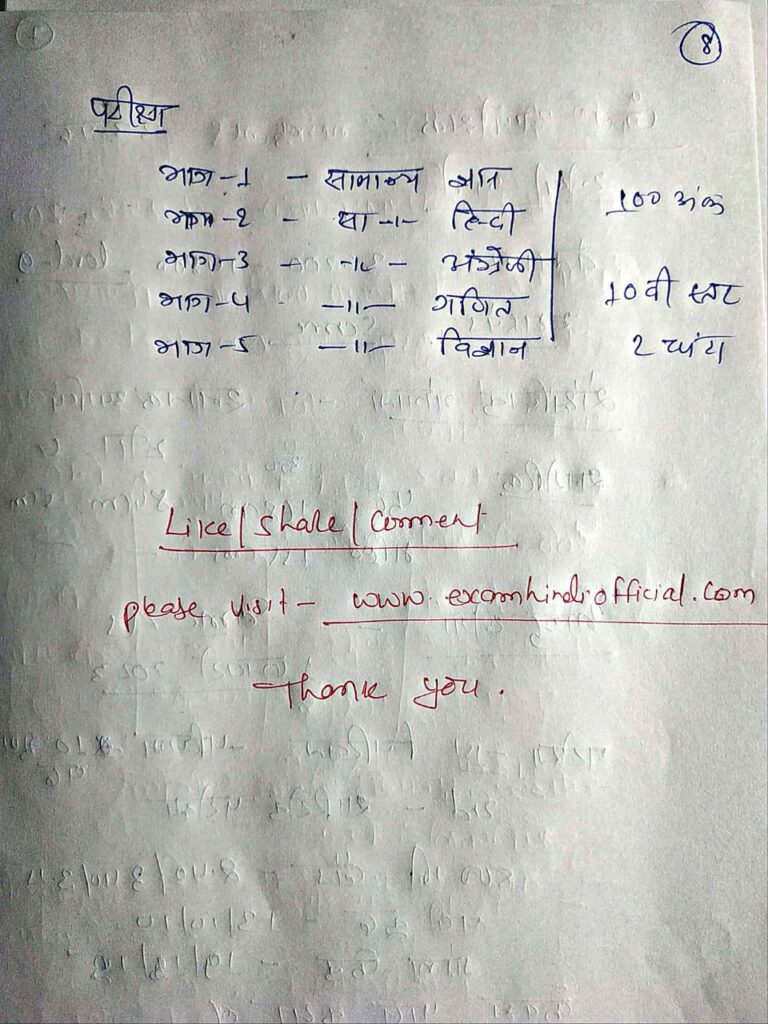 8
परीक्षा
भाग-1 - सामान्य ज्ञान
भाग-2 - सा -॥- हिन्दी
भाग-3 - -॥- - अंग्रेजी
भाग-4 - -॥- गणित
भाग-5 -॥- विज्ञान
100 अंक
10वी स्तर
2 घंटा
Like/Share/Comment
please visit- www.examhindiofficial.com
Thank you.